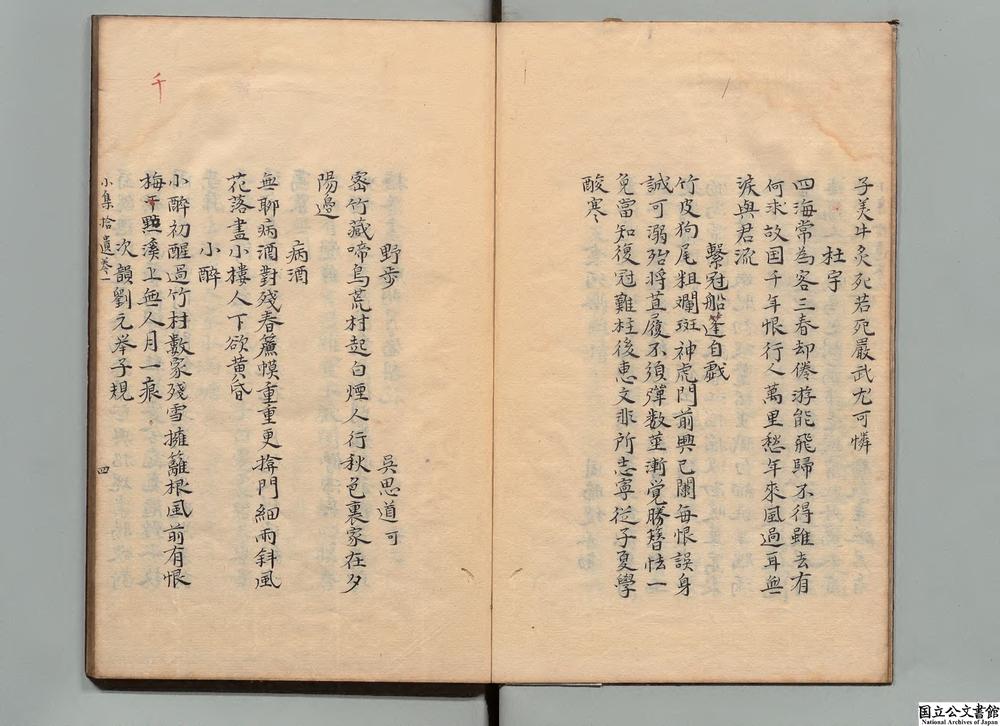 子美牛炙死若死嚴武尤可憐
杜宇
四海常為客三春却倦游能飛歸不得雖去有
何求故国千年恨行人萬里愁年來風過耳無
淚與君流
繫冠船篷自戲
竹皮狗尾粗斕斑神虎門前興已闌每恨誤身
誠可溺殆將苴履不須彈数莖漸覚勝簪怯一
免當知復冠難柱後恵文非所志寧従子夏學
酸寒
野步
吳思道可
密竹藏啼鳥荒村起白煙人行秋色裏家在夕
陽邊
病酒
無聊病酒對殘春簾幙重重更揜門細雨斜風
花落盡小樓人下欲黄昏
小醉
小醉初醒過竹村數家殘雪擁籬根風前有恨
梅千點溪上無人月一痕
次韻劉元举子規
小集拾遺卷一
四
千
国立公文書館
National Archives of Japan